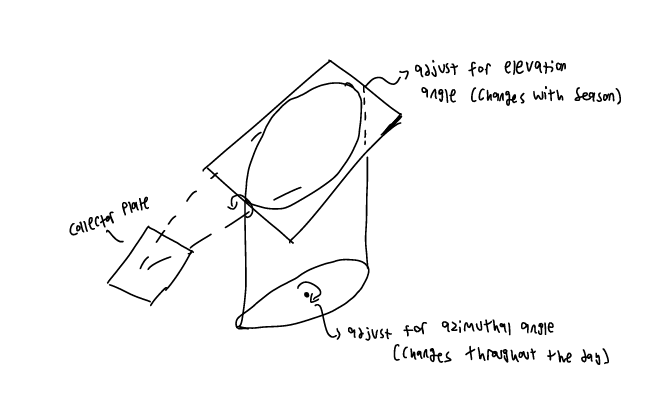 adjust for elevation
angle (changes with season)
collector plate
adjust for azimuthal angle
(changes throughout the day)